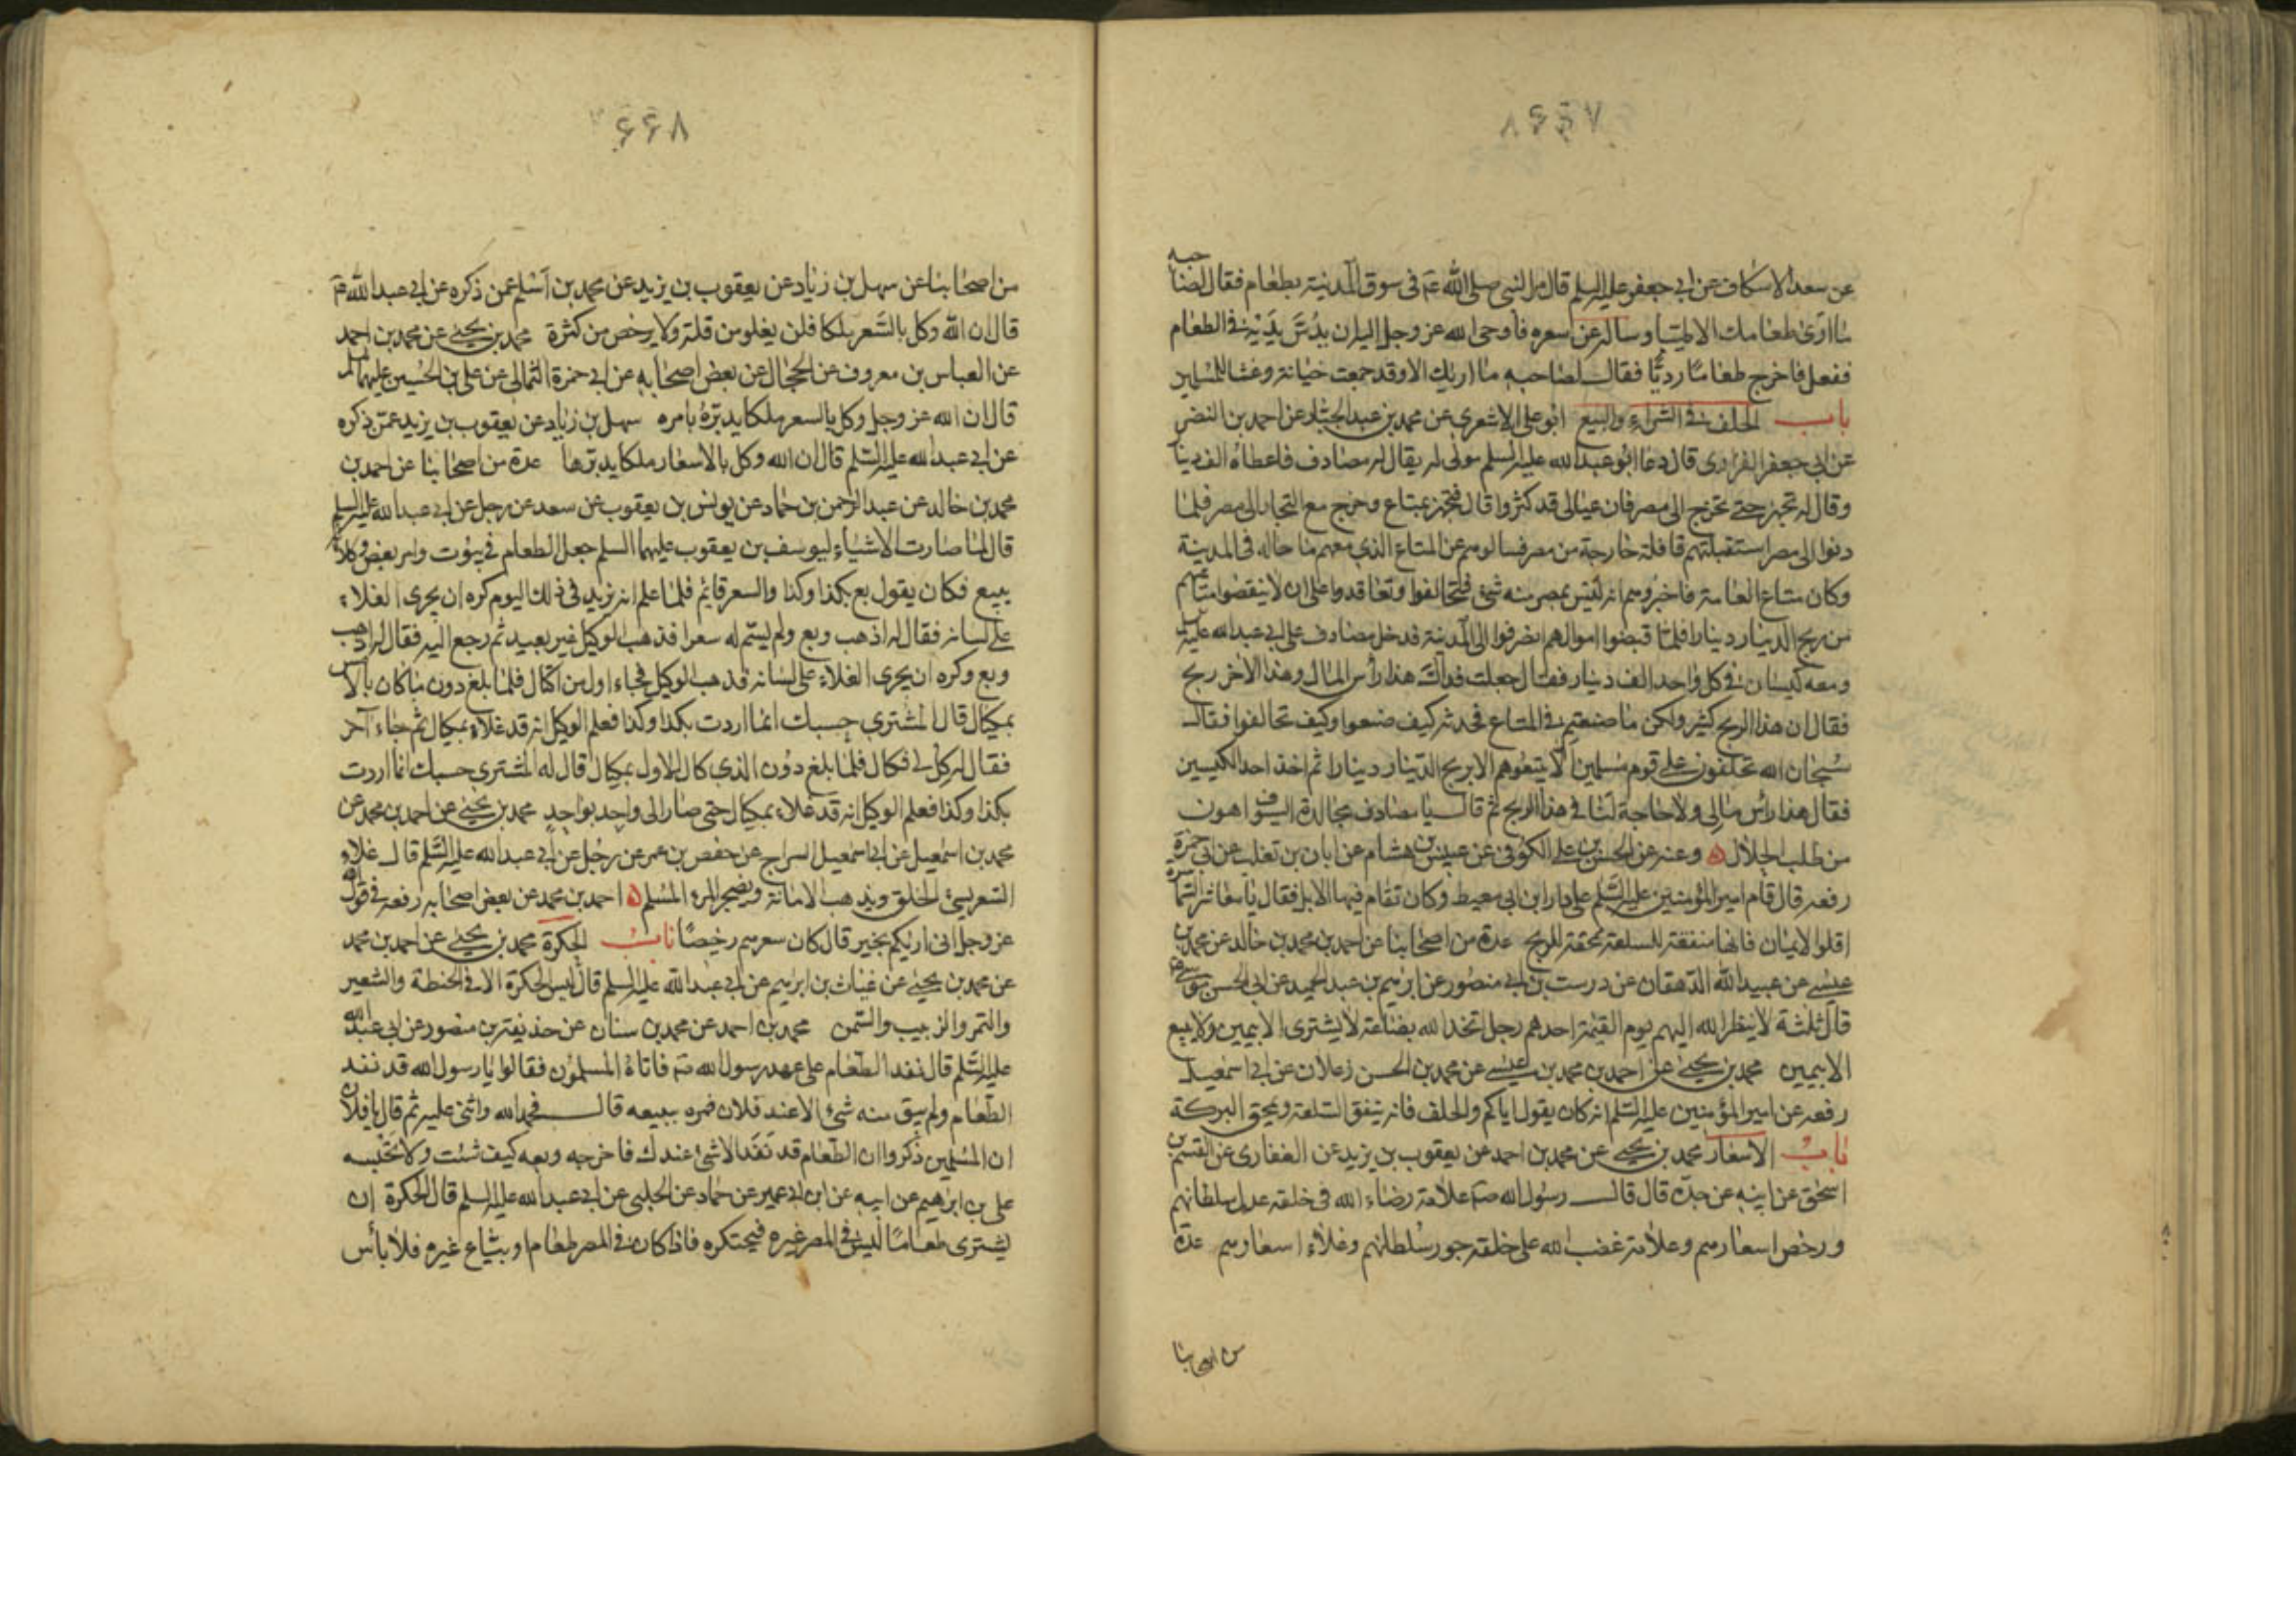 ۸۶۶۷
عن سعد الاسكاف عن ابي جعفر عليه السلم قال مر النبي صلى الله عم في سوق المدينة بطعام فقال لصاحبه
ما ارى طعامك الا طيبا وساله عن سعره فاوحى الله عز وجل اليه ان يدس يديه في الطعام
ففعل فاخرج طعاما رديا فقال لصاحبه ما اريك الا وقد جمعت خيانة وغشا للمسلمين
باب الحلف في الشراء والبيع ابو على الاشعري عن محمد بن عبد الجبار عن احمد بن النضر
عن ابي جعفر الفزارى قال دعا ابو عبد الله عليه السلم مولى له يقال له مصادف فاعطاه الف دينا
وقال له تجهز حتى تخرج الى مصر فان عيالى قد كثروا قال فتجهز بمتاع وخرج مع التجار الى مصر فلما
دنوا الى مصر استقبلتهم قافلة خارجة من مصر فسالوهم عن المتاع الذي معهم ما حاله في المدينة
وكان متاع العامة فاخبروهم انه ليس بمصر منه شئ فتحالفوا وتعاقدوا على ان لا ينقصوا متاعهم
من ربح الدينار دينارا فلما قبضوا اموالهم انصرفوا الى المدينة فدخل مصادف على ابي عبد الله عليه السلم
ومعه كيسان في كل واحد الف دينار فقال جعلت فداك هذا رأس المال وهذا الاخر ربح
فقال ان هذا الربح كثير ولكن ما صنعتم في المتاع فحدثه كيف صنعوا وكيف تحالفوا فقال
سبحان الله تحلفون على قوم مسلمين الا يتبعوهم الا بربح الدينار دينارا ثم اخذ احد الكيسين
فقال هذا رأس مالى ولا حاجة لنا في هذا الربح ثم قال يا مصادف مجالدة السيوف اهون
من طلب الحلال وعنه عن الحسن بن على الكوفي عن عبيس بن هشام عن ابان بن تغلب عن ابي حمزة
رفعه قال قام امير المؤمنين عليه السلم على دار ابن ابي معيط وكان تقام فيها الابل فقال يا معاشر السماسرة
اقلوا الايمان فانها منفقة للسلعة ممحقة للربح عدة من اصحابنا عن احمد بن محمد بن خالد عن محمد بن
عيسى عن عبيد الله الدهقان عن درست بن ابي منصور عن ابرهيم بن عبد الحميد عن ابى الحسن موسى عم
قال ثلثة لا ينظر الله اليهم يوم القيمة احدهم رجل اتخذ الله بضاعة لا يشترى الا بيمين ولا يبيع
الا بيمين محمد بن يحيى عن احمد بن محمد بن عيسى عن محمد بن الحسن زعلان عن ابي اسمعيل
رفعه عن امير المؤمنين عليه السلم انه كان يقول اياكم والحلف فانه ينفق السلعة ويمحق البركة
باب الاسعار محمد بن يحيى عن محمد بن احمد عن يعقوب بن يزيد عن الغفارى عن القسم بن
اسحق عن ابيه عن جده قال قال رسول الله صم علامة رضاء الله في خلقه عدل سلطانهم
ورخص اسعارهم وعلامة غضب الله على خلقه جور سلطانهم وغلاء اسعارهم عدة
من اصحابنا
۶۶۸
من اصحابنا عن سهل بن زياد عن يعقوب بن يزيد عن محمد بن اسلم عمن ذكره عن ابي عبد الله عم
قال ان الله وكل بالسعر ملكا فلن يغلو من قلة ولا يرخص من كثرة محمد بن يحيى عن محمد بن احمد
عن العباس بن معروف عن الحجال عن بعض اصحابه عن ابي حمزة الثمالى عن على بن الحسين عليهما السلم
قال ان الله عز وجل وكل بالسعر ملكا يدبره بامره سهل بن زياد عن يعقوب بن يزيد عمن ذكره
عن ابي عبد الله عليه السلم قال ان الله وكل بالاسعار ملكا يدبرها عدة من اصحابنا عن احمد بن
محمد بن خالد عن عبد الرحمن بن حماد عن يونس بن يعقوب عن سعد عن رجل عن ابي عبد الله عليه السلم
قال لما صارت الاشياء ليوسف بن يعقوب عليهما السلم جعل الطعام في بيوت وامر بعض وكلائه
يبيع فكان يقول بع بكذا وكذا والسعر قائم فلما علم انه يزيد في ذلك اليوم كره ان يجرى الغلاء
على لسانه فقال له اذهب وبع ولم يسم له سعرا فذهب الوكيل غير بعيد ثم رجع اليه فقال له اذهب
وبع وكره ان يجرى الغلاء على لسانه فذهب الوكيل فجاء اول من اكتال فلما بلغ دون ما كان بالامس
بمكيال قال المشترى حسبك انما اردت بكذا وكذا فعلم الوكيل انه قد غلاء بمكيال ثم جاء آخر
فقال له كل لي فكال فلما بلغ دون الذي كال الاول بمكيال قال له المشترى حسبك انما اردت
بكذا وكذا فعلم الوكيل انه قد غلاء بمكيال حتى صار الى واحد بواحد محمد بن يحيى عن احمد بن محمد عن
محمد بن اسمعيل عن ابي اسمعيل السراج عن حفص بن عمر عن رجل عن ابي عبد الله عليه السلم قال غلاء
السعر يسئ الخلق ويذهب الامانة ويضجر المرء المسلم احمد بن محمد عن بعض اصحابه رفعه في قول الله
عز وجل انى اريكم بخير قال كان سعرهم رخيصا باب الحكرة محمد بن يحيى عن احمد بن محمد
عن محمد بن يحيى عن غياث بن ابرهيم عن ابي عبد الله عليه السلم قال ليس الحكرة الا في الحنطة والشعير
والتمر والزبيب والسمن محمد بن احمد عن محمد بن سنان عن حذيفة بن منصور عن ابى عبد الله
عليه السلم قال نفد الطعام على عهد رسول الله صم فاتاه المسلمون فقالوا يا رسول الله قد نفد
الطعام ولم يبق منه شئ الا عند فلان فمره ببيعه قال فحمد الله واثنى عليه ثم قال يا فلان
ان المسلمين ذكروا ان الطعام قد نفد الا شئ عندك فاخرجه وبعه كيف شئت ولا تحبسه
على بن ابرهيم عن ابيه عن ابن ابى عمير عن حماد عن الحلبى عن ابي عبد الله عليه السلم قال الحكرة ان
يشترى طعاما ليس في المصر غيره فيحتكره فاذا كان في المصر طعام او يباع غيره فلا بأس